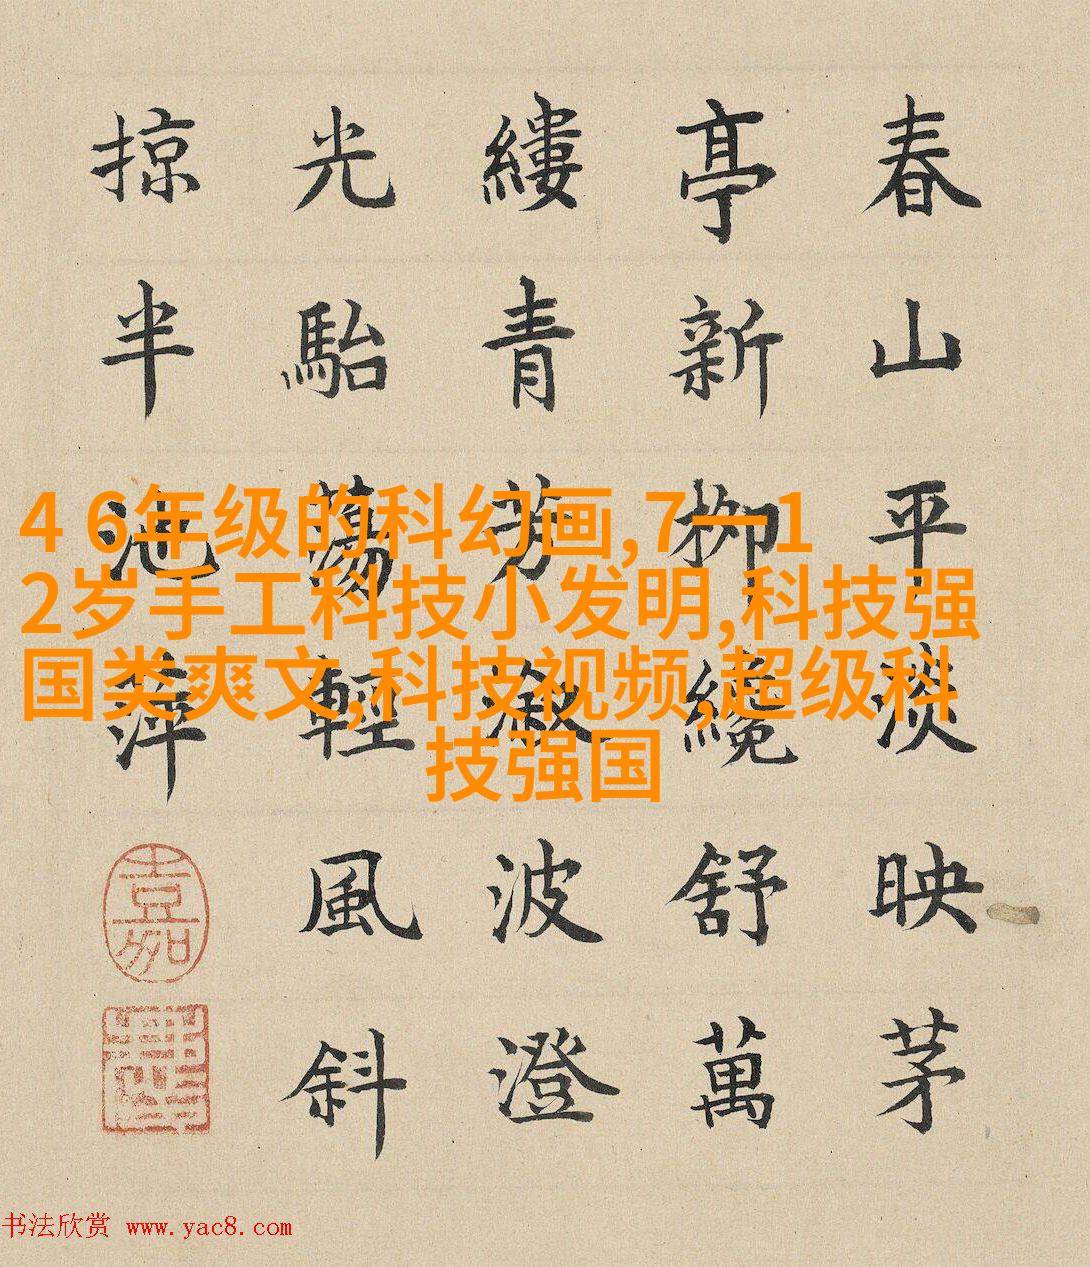 春山平淡映茅
亭新柳纔舒萬
縷青芳溆波澄
光駘蕩輕風斜
掠半池萍
嘉
4 6年级的科幻画,7—1
2岁手工科技小发明,科技强
国类爽文,科技视频,超级科
技强国
书法欣赏 www.yac8.com